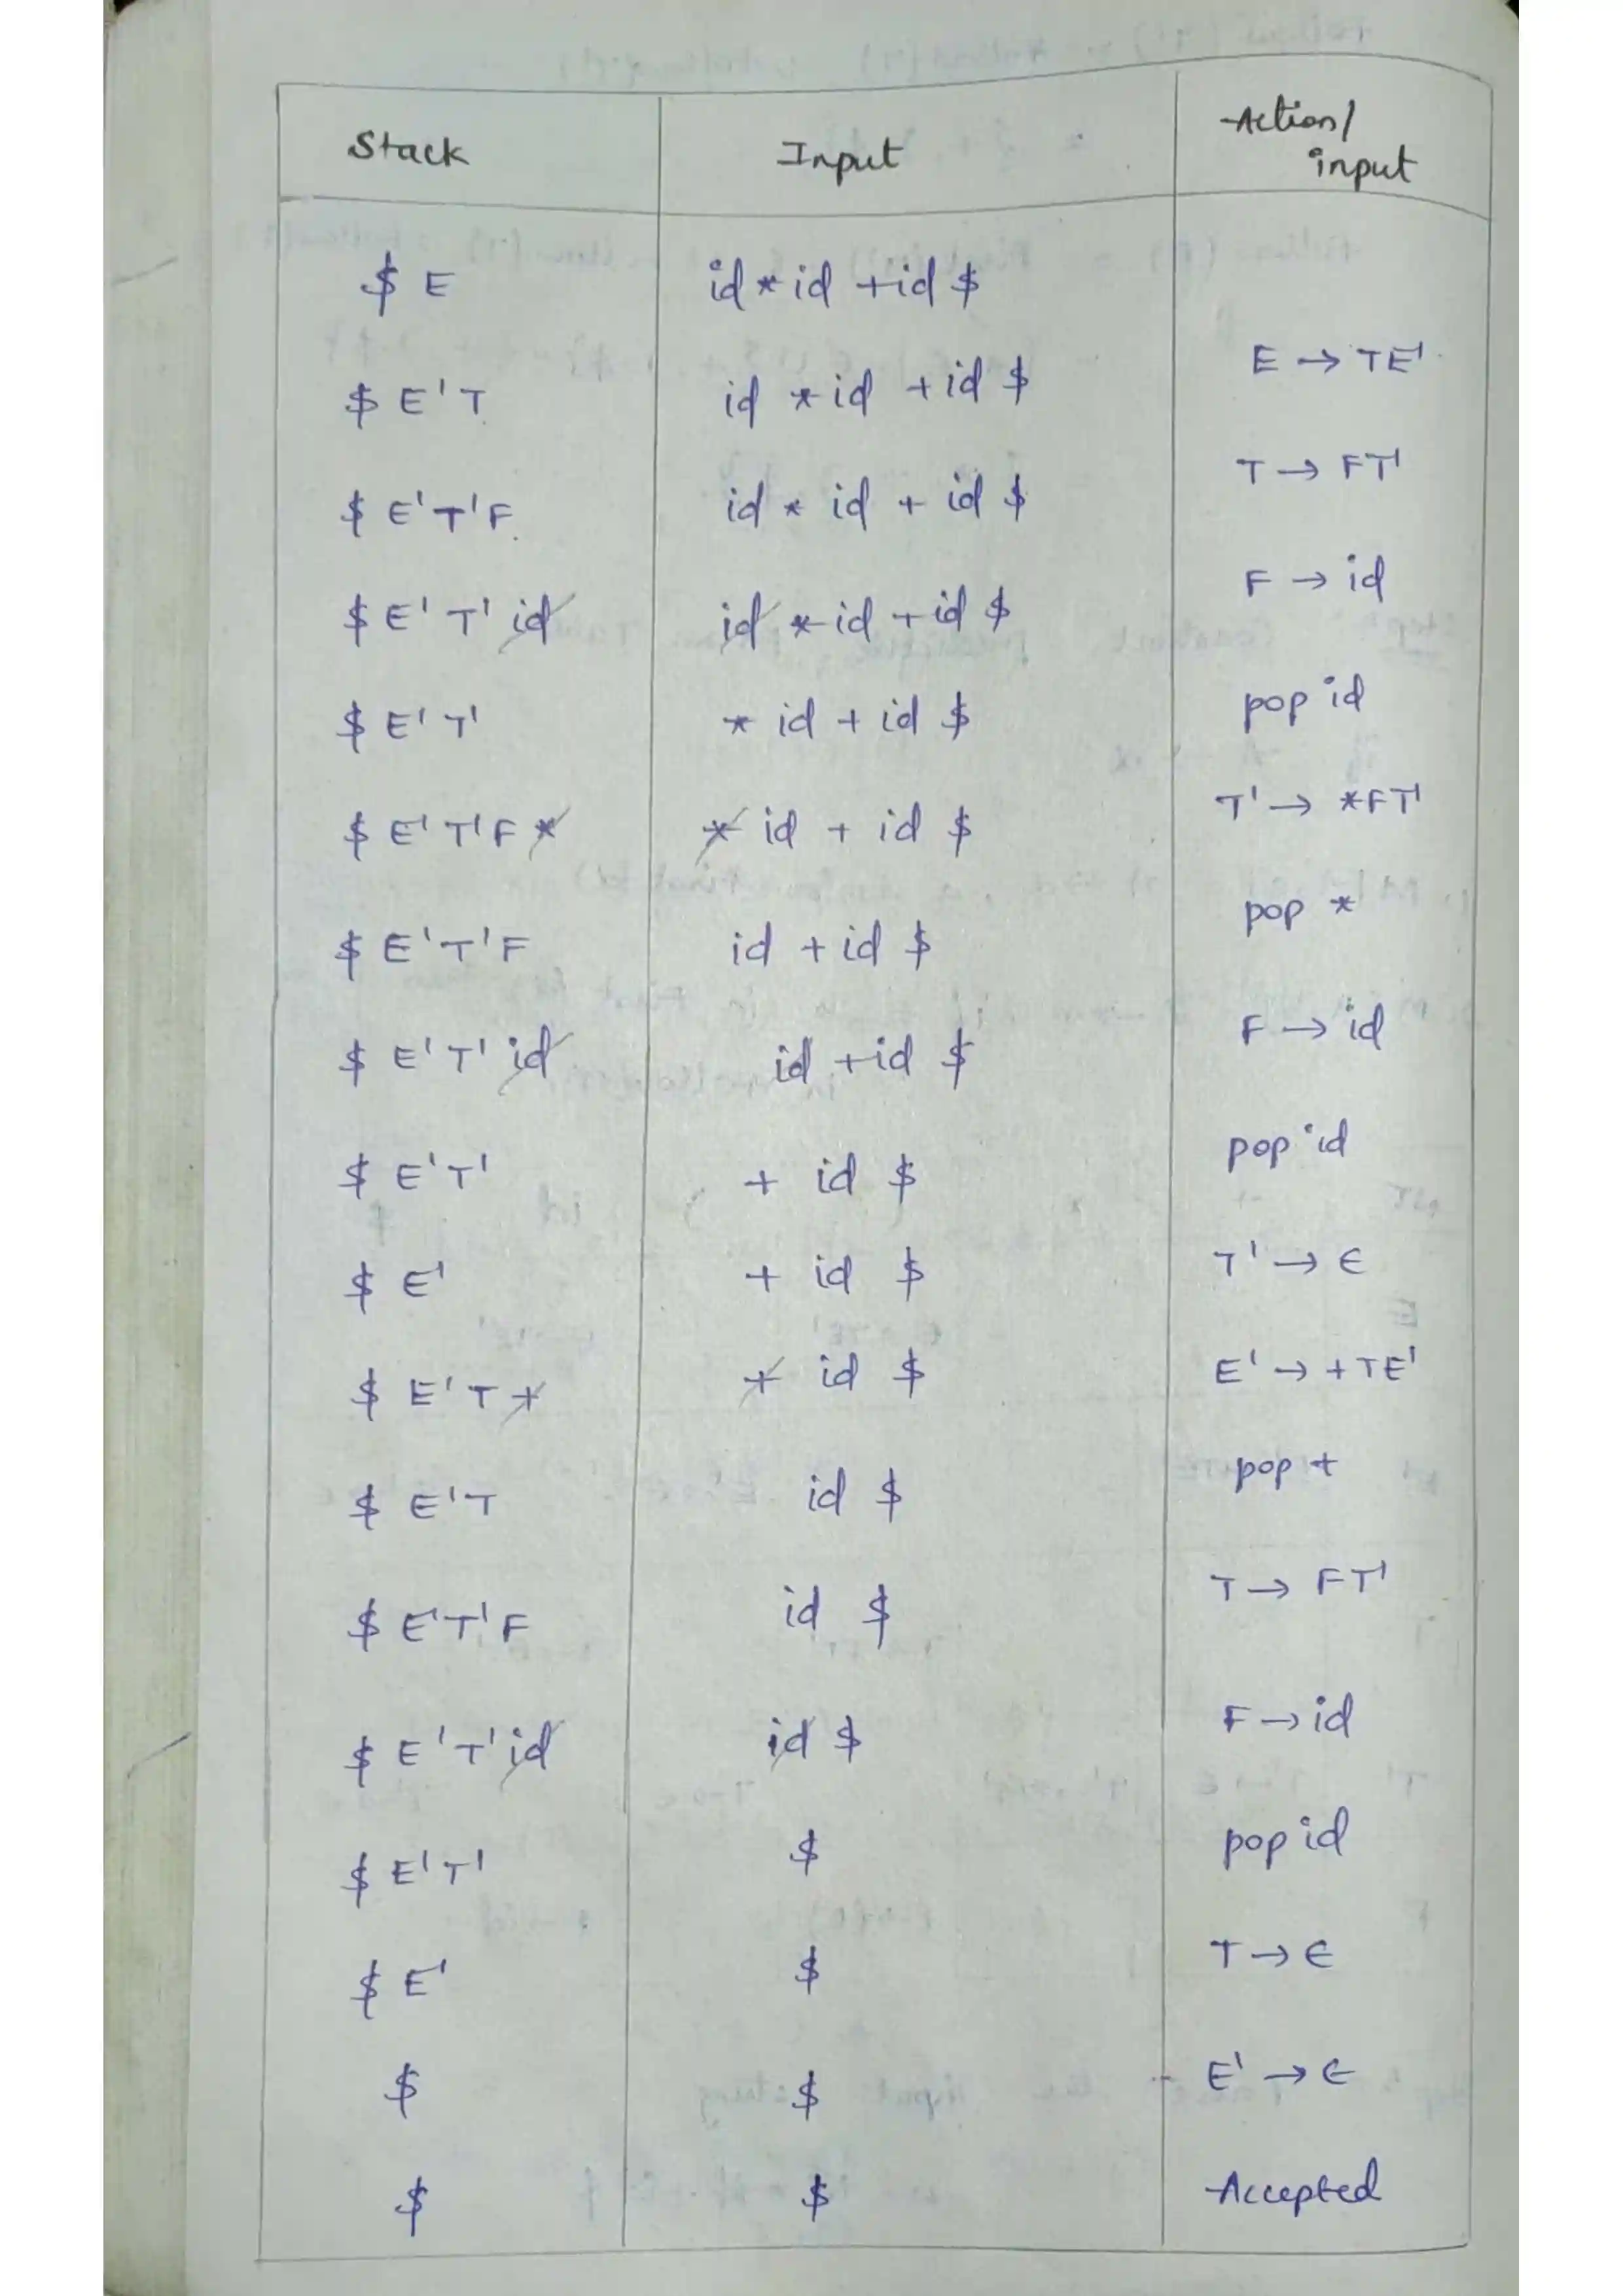 Stack Input Action/
input
$ E id * id + id $
E → TE'
$ E' T id * id + id $
T → FT'
$ E' T' F id * id + id $
F → id
$ E' T' id id * id + id $
pop id
$ E' T' * id + id $
T' → *FT'
$ E' T' F * * id + id $
pop *
$ E' T' F id + id $
F → id
$ E' T' id id + id $
pop id
$ E' T' + id $
T' → ϵ
$ E' + id $
E' → +TE'
$ E' T + + id $
pop +
$ E' T id $
T → FT'
$ E' T' F id $
F → id
$ E' T' id id $
pop id
$ E' T' $
T → ϵ
$ E' $
E' → ϵ
$ $
$ $ Accepted